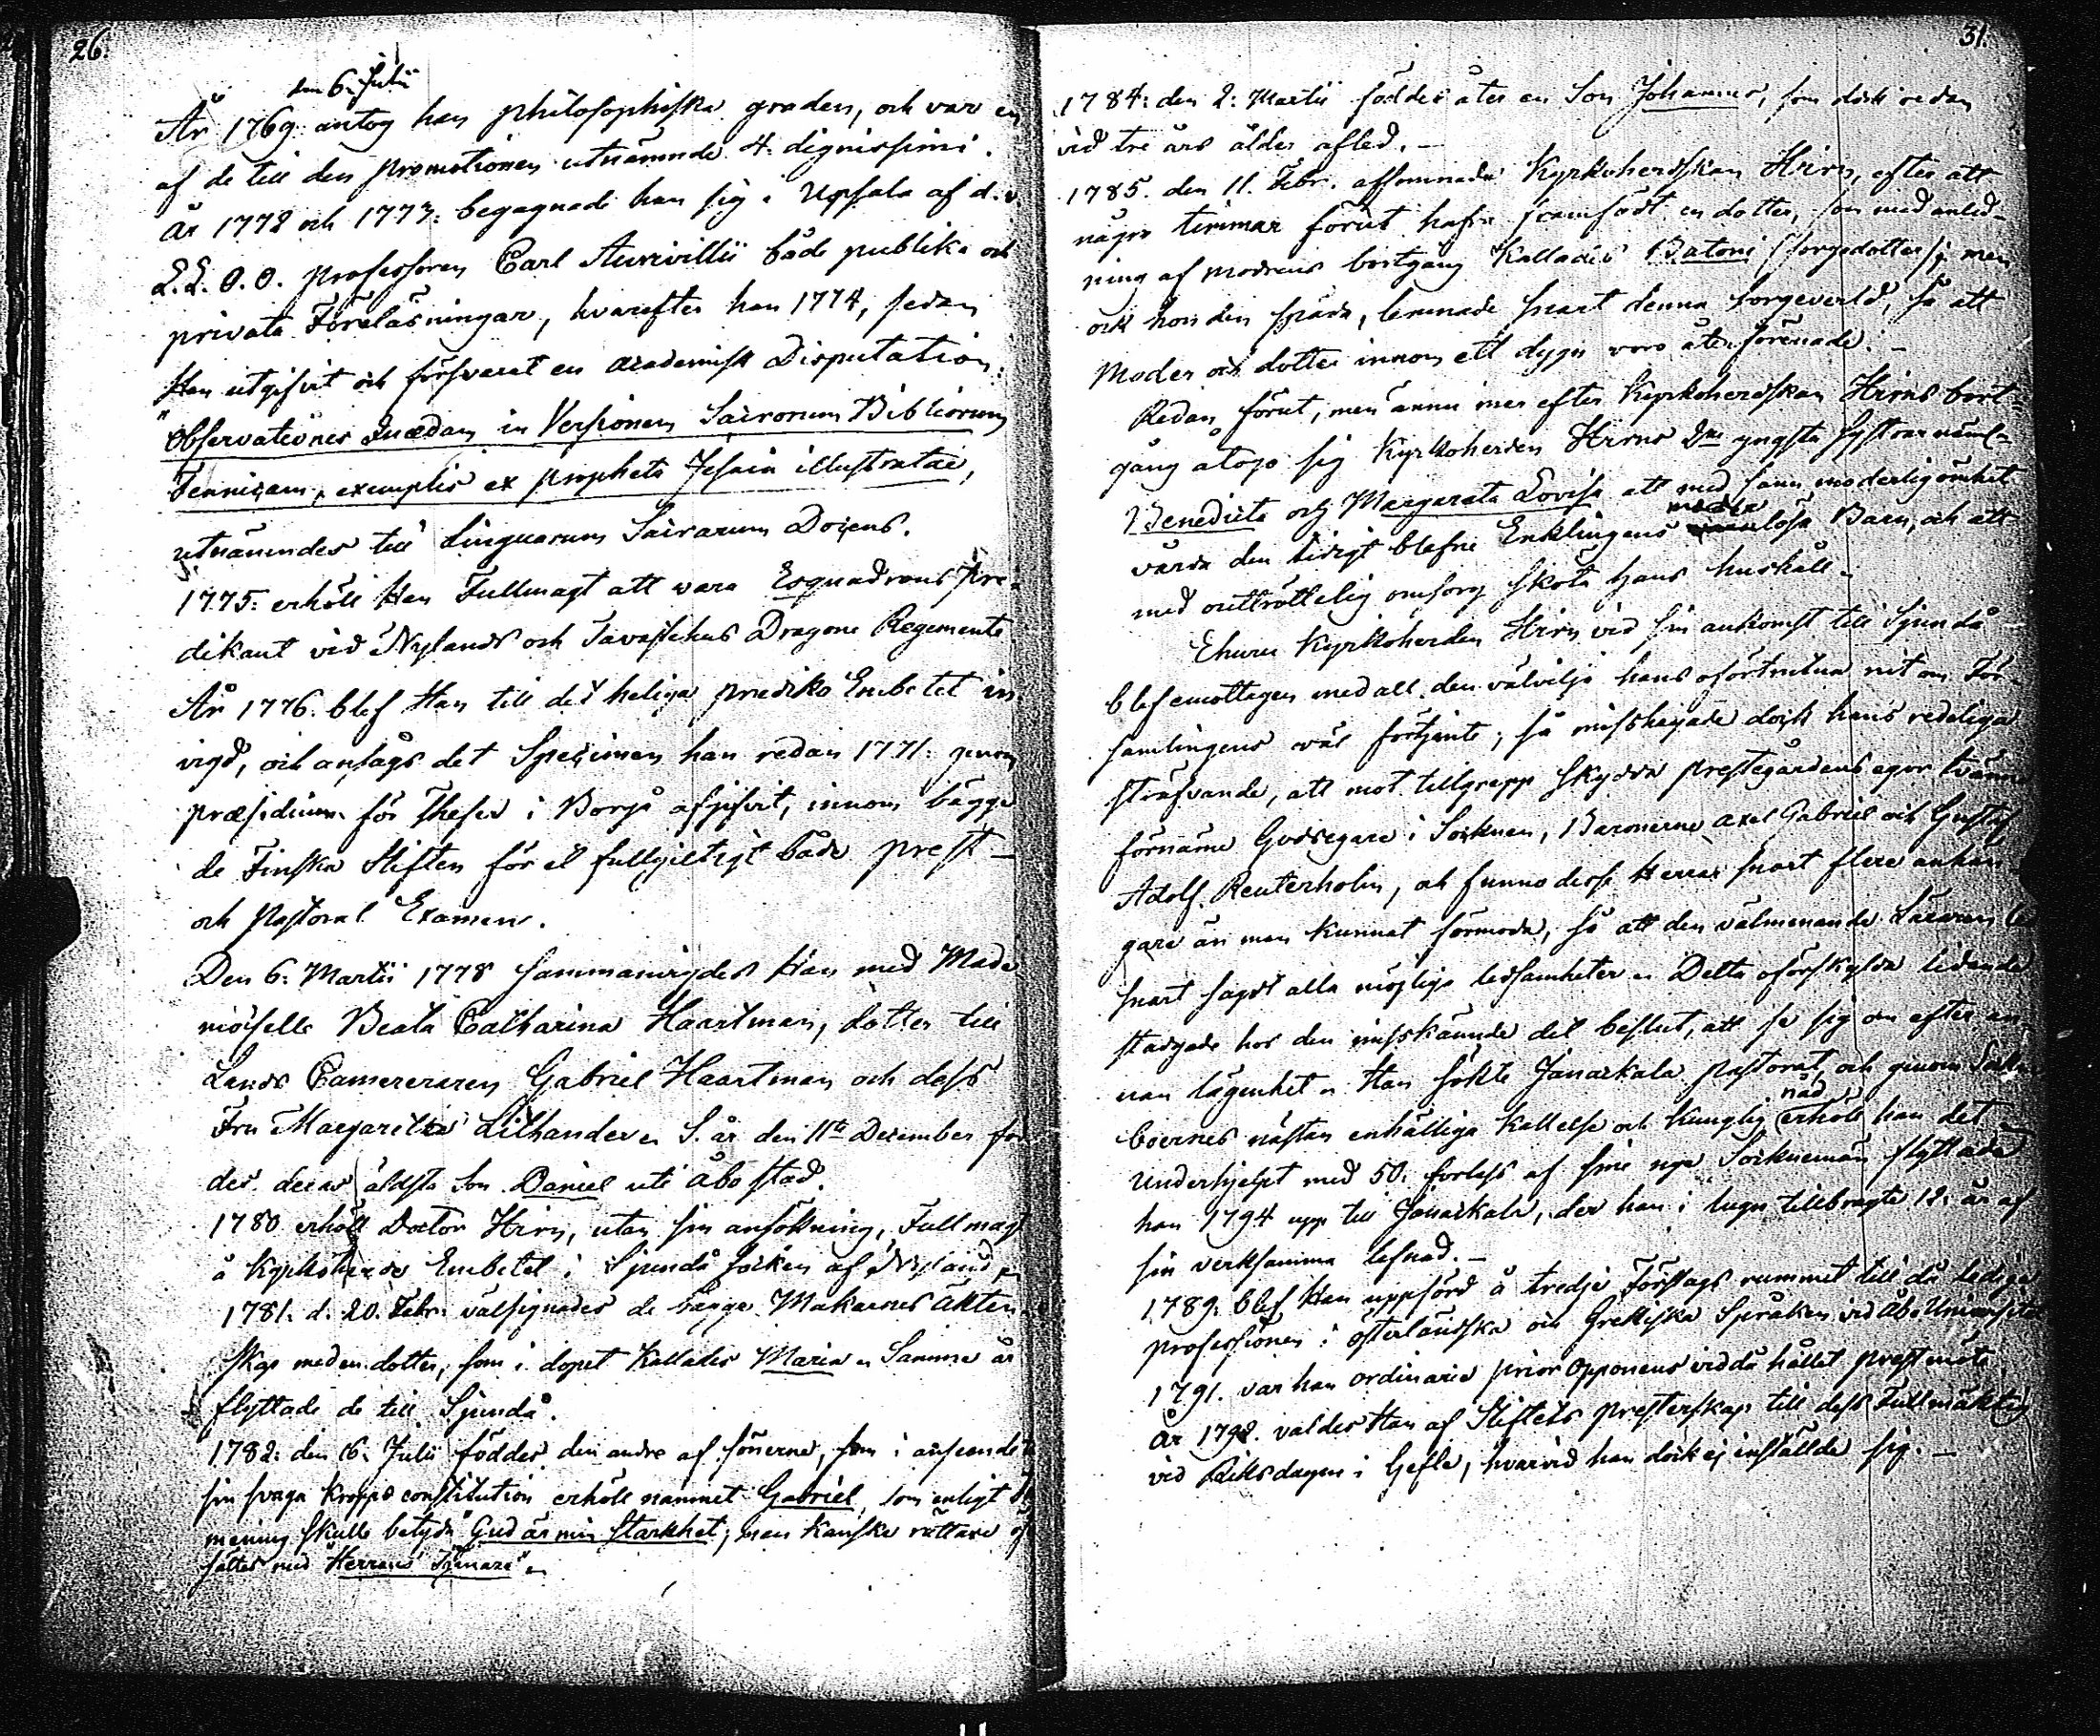 26.
den 6. Julii
År 1769. antog han philosophiska graden, och var en
af de till den promotionen utnämnde 4. dignissimi.
År 1772 och 1773. begagnade han sig i Upsala af d. v.
L.L. O.O. Professoren Carl Aurivillii både publika och
privata Föreläsningar, hvarefter han 1774, sedan
Han utgifvit och försvarat en academisk Disputation:
"Observationes Quædam in Versionem Sacrorum Bibliorum
Fennicam, exemplis ex propheta Jesaia illustratae,
utnämndes till Linguarum Sacrarum Docens.
1775: erhöll Han Fullmagt att vara Esquadrons Pre-
dikant vid Nylands och Tavastehus Dragone Regemente
År 1776. blef Han till det heliga prediko Embetet in
vigd, och ansågs det Specimen han redan 1771. genom
præsidium för Theser i Borgå afgifvit, innom bägge
de Finska Stiften för et fullgiltigt både prest-
och Pastoral Examen.
Den 6: Martii 1778 sammanvigdes Han med Made
moiselle Beata Catharina Haartman, dotter till
Lands Camereraren Gabriel Haartman och dess
Fru Margaretha Lilhander. S. år den 11te December föd
des deras äldsta Son Daniel uti Åbo stad.
1780 erhöll Doctor Hirn, utan sin ansökning, Fullmagt
å Kyrkoherde Embetet i Sjundå socken af Nyland.
1781. d. 20. Febr. välsignades de bägge Makarnes äkten-
skap med en dotter, som i dopet kallades Maria. Samma år
flyttade de till Sjundå.
1782: den 16. Julii föddes den andre af sönerne, som i anseende t
sin svaga kropps constitution erhöll namnet Gabriel, som enligt
mening skulle betyda "Gud är min starkhet, men kanske rättare öf
sättes med "Herrans Tjenare".
31.
1784: den 2: Martii föddes åter en Son Johannes, som dock redan
vid tre års ålder afled. –
1785. den 11. Febr. afsomnade Kyrkoherdskan Hirn, efter att
några timmar förut hafva framfödt en dotter, som med anled-
ning af modrens bortgång kallades Batoni (sorgedotter); men
ock hon den späda, lemnade snart denna sorgeverld, så att
Moder och dotter innom ett dygn voro åter förenade. –
Redan förut, men ännu mer efter Kyrkoherdskan Hirns bort-
gång åtogo sig Kyrkoherden Hirns 2ne yngsta systrar näml.
Benedicta och Margareta Lovisa att med sann moderlig ömhet
vårda den tidigt blefne Enklingens moderlösa Barn, och att
med outtröttelig omsorg sköta hans hushåll. –
Ehuru Kyrkoherden Hirn vid sin ankomst till Sjundå
blef emottagen med all den välvilja hans oförtrutna nit om För-
samlingens väl förtjente, så misshagade dock hans redeliga
sträfvande, att mot tillgrepp skydda prestegårdens egor tvänne
förnäme Godsegare i Socknen, Baronerne Axel Gabriel och Gustaf
Adolf Reuterholm, och funno desse Herrar snart flere anhän-
gare än man kunnat förmoda, så att den välmenande Läraren
snart sagdt alla möjliga ledsamheter. Detta oförskylda lidande
stadgade hos den misskände det beslut, att se sig om efter an-
nan lägenhet. Han sökte Janackala pastorat, och genom Sockne
nåd
boernes nästan enhälliga kallelse och Kunglig erhöll han det.
Underhjelpt med 50. forlass af sine nye Socknemän flyttade
han 1794 upp till Janackala, der han i lugn tillbragte 12. år af
sin verksamma lefnad. –
1789. blef Han uppförd å tredje Förslags rummet till då lediga
professionen i österländska och Grekiska Språken vid Åbo Universitet
1791. var han ordinarie prior Opponens vid då hållet prestmöte
År 1792. valdes Han af Stiftets presterskap till dess Fullmäktig
vid Riksdagen i Gefle, hvarvid han dock ej inställde sig. –